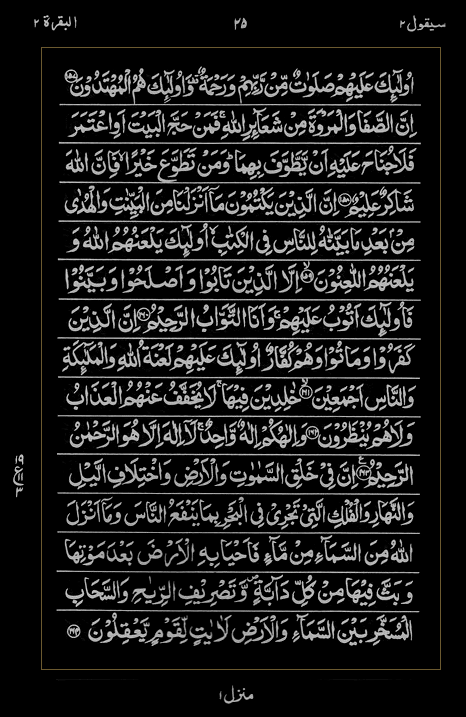 سيقول ٢ ٢٥ البقرة ٢
اُولٰٓئِكَ عَلَيْهِمْ صَلَوٰتٌ مِّنْ رَّبِّهِمْ وَرَحْمَةٌ ۫ وَاُولٰٓئِكَ هُمُ الْمُهْتَدُوْنَ ﴿۱۵۷﴾
اِنَّ الصَّفَا وَالْمَرْوَةَ مِنْ شَعَآئِرِ اللّٰهِ ۚ فَمَنْ حَجَّ الْبَيْتَ اَوِ اعْتَمَرَ
فَلَا جُنَاحَ عَلَيْهِ اَنْ يَّطَّوَّفَ بِهِمَا ؕ وَمَنْ تَطَوَّعَ خَيْرًا ۙ فَاِنَّ اللّٰهَ
شَاكِرٌ عَلِيْمٌ ﴿۱۵۸﴾ اِنَّ الَّذِيْنَ يَكْتُمُوْنَ مَآ اَنْزَلْنَا مِنَ الْبَيِّنٰتِ وَالْهُدٰى
مِنْۢ بَعْدِ مَا بَيَّنّٰهُ لِلنَّاسِ فِى الْكِتٰبِ ۙ اُولٰٓئِكَ يَلْعَنُهُمُ اللّٰهُ وَ
يَلْعَنُهُمُ اللّٰعِنُوْنَ ﴿۱۵۹﴾ اِلَّا الَّذِيْنَ تَابُوْا وَاَصْلَحُوْا وَبَيَّنُوْا
فَاُولٰٓئِكَ اَتُوْبُ عَلَيْهِمْ ۚ وَاَنَا التَّوَّابُ الرَّحِيْمُ ﴿۱۶۰﴾ اِنَّ الَّذِيْنَ
كَفَرُوْا وَمَاتُوْا وَهُمْ كُفَّارٌ اُولٰٓئِكَ عَلَيْهِمْ لَعْنَةُ اللّٰهِ وَالْمَلٰٓئِكَةِ
وَالنَّاسِ اَجْمَعِيْنَ ﴿۱۶۱﴾ خٰلِدِيْنَ فِيْهَا ۚ لَا يُخَفَّفُ عَنْهُمُ الْعَذَابُ
وَلَا هُمْ يُنْظَرُوْنَ ﴿۱۶۲﴾ وَاِلٰهُكُمْ اِلٰهٌ وَّاحِدٌ ۚ لَآ اِلٰهَ اِلَّا هُوَ الرَّحْمٰنُ
الرَّحِيْمُ ﴿۱۶۳﴾ اِنَّ فِيْ خَلْقِ السَّمٰوٰتِ وَالْاَرْضِ وَاخْتِلَافِ الَّيْلِ
وَالنَّهَارِ وَالْفُلْكِ الَّتِيْ تَجْرِيْ فِى الْبَحْرِ بِمَا يَنْفَعُ النَّاسَ وَمَآ اَنْزَلَ
اللّٰهُ مِنَ السَّمَآءِ مِنْ مَّآءٍ فَاَحْيَا بِهِ الْاَرْضَ بَعْدَ مَوْتِهَا
وَبَثَّ فِيْهَا مِنْ كُلِّ دَآبَّةٍ ۪ وَّتَصْرِيْفِ الرِّيٰحِ وَالسَّحَابِ
الْمُسَخَّرِ بَيْنَ السَّمَآءِ وَالْاَرْضِ لَاٰيٰتٍ لِّقَوْمٍ يَّعْقِلُوْنَ ﴿۱۶۴﴾
منزل ١